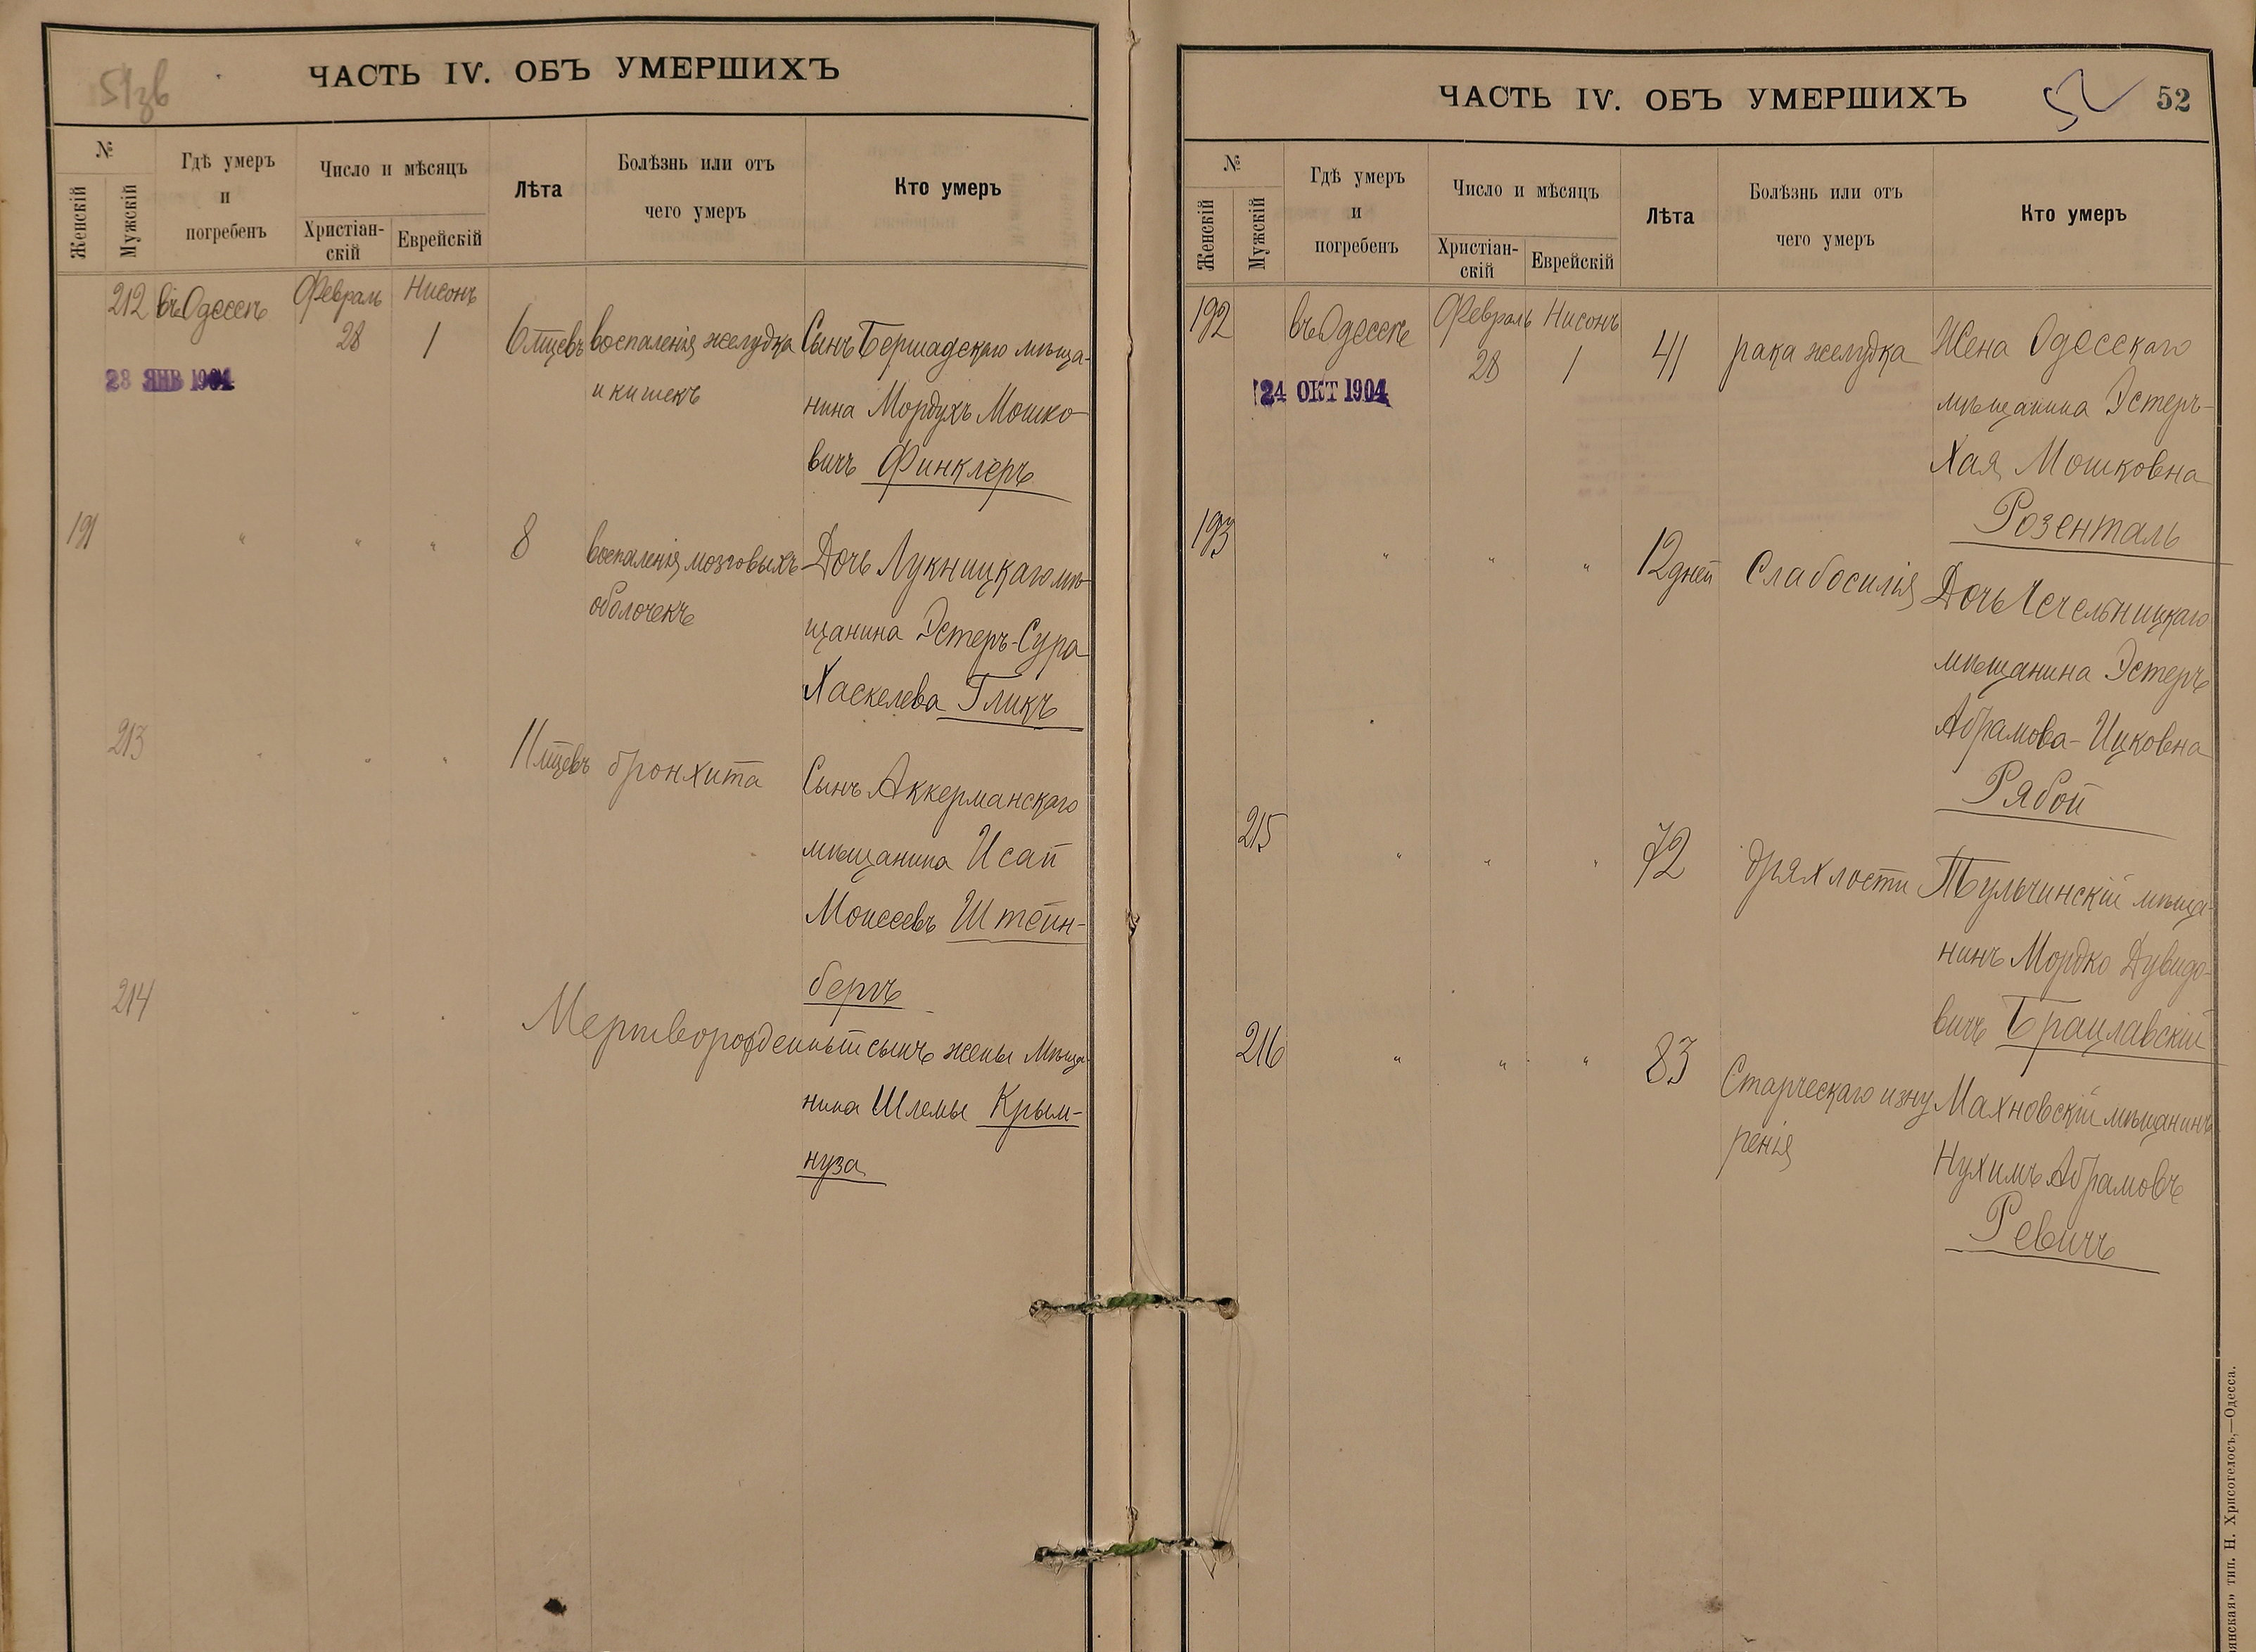 51зв
ЧАСТЬ IV. ОБЪ УМЕРШИХЪ
№
Женскій
Мужскій
Гдѣ умеръ
и
погребенъ
Число и мѣсяцъ
Христіан-
скій
Еврейскій
Лѣта
Болѣзнь или отъ
чего умеръ
Кто умеръ
212 въ Одессѣ Февраль Нисонъ
28 1 6 мцевъ воспаленія желудка Сынъ Бершадскаго мѣща-
28 ЯНВ 1904
и кишекъ нина Мордухъ Мошко-
вичъ Финклеръ
191 " " " 8 воспаленія мозговыхъ Дочь Лукницкаго мѣ-
оболочекъ щанина Эстеръ-Сура
Хаскелева Гликъ
213 " " " 11 мцевъ бронхита Сынъ Аккерманскаго
мѣщанина Исай
Моисеевъ Штейн-
бергъ
214 " " " Мертворожденный сынъ жены мѣща-
нина Шлемы Крым-
нуза
ЧАСТЬ IV. ОБЪ УМЕРШИХЪ
52
52
№
Женскій
Мужскій
Гдѣ умеръ
и
погребенъ
Число и мѣсяцъ
Христіан-
скій
Еврейскій
Лѣта
Болѣзнь или отъ
чего умеръ
Кто умеръ
192 въ Одессѣ Февраль Нисонъ
28 1 41 рака желудка Жена Одесскаго
24 ОКТ 1904
мѣщанина Эстеръ-
Хая Мошковна
Розенталь
193 " " " 12 дней Слабосилія Дочь Чечельницкаго
мѣщанина Эстеръ
Абрамова-Ицковна
Рябой
215 " " " 72 дряхлости Тульчинскій мѣща-
нинъ Мордко Дувидо-
вичъ Брацлавскій
216 " " " 83 Старческаго изну Махновскій мѣщанинъ
ренія Нухимъ Абрамовъ
Ревичъ
тип. Н. Хрисогелосъ,—Одесса.